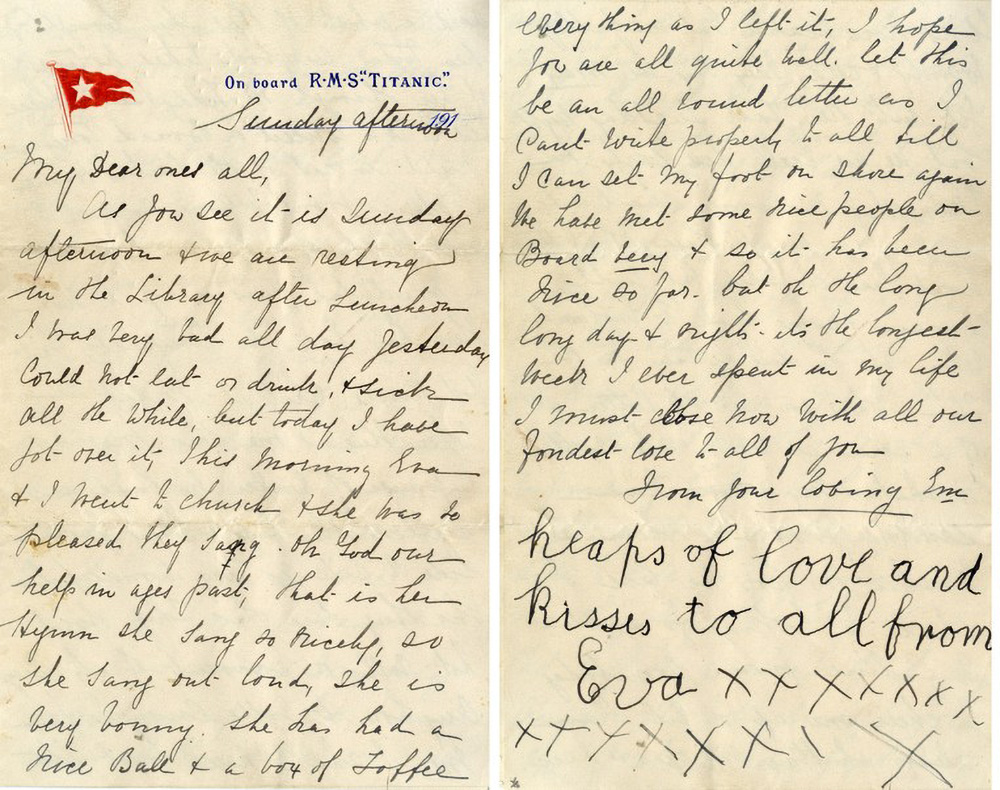 On board R·M·S "TITANIC."
191
Sunday afternoon
My Dear ones all,
As you see it is Sunday
afternoon & we are resting
in the Library after Luncheon
I was very bad all day Yesterday
Could not eat or drink, & sick
all the while, but today I have
got over it, This morning Eva
& I went to church & she was so
pleased they sang. Oh God our
help in ages past, that is her
Hymn she sang so nicely, so
she sang out loud, she is
very bonny. she has had a
nice Ball & a box of Toffee
everything as I left it, I hope
you are all quite well. let this
be an all round letter as I
Cant write properly to all till
I can set my foot on shore again
We have met some nice people on
Board & so it has been
nice so far. but oh the long
long day & nights. its the longest
Week I ever spent in my life
I must close now with all our
fondest love to all of you
From your loving Em
heaps of love and
kisses to all from
Eva xxxxxxx
xxxxxxx\X